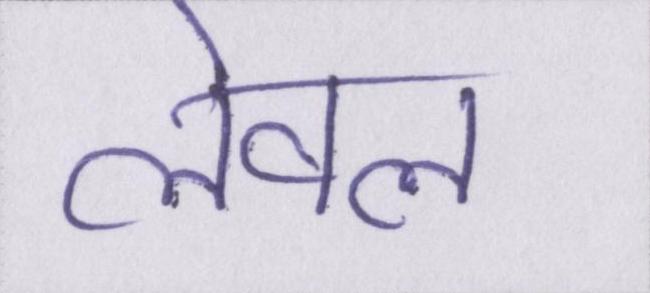 लेवल